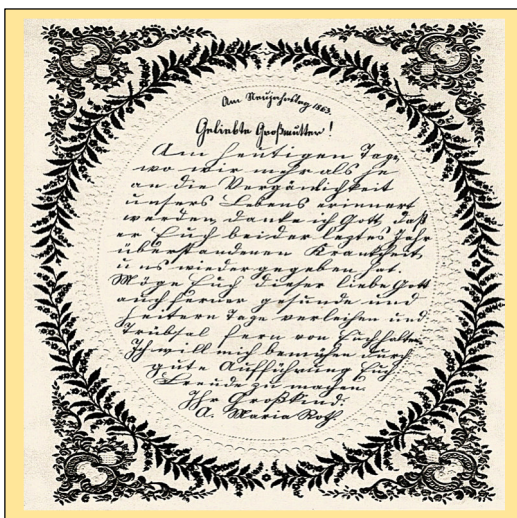 Am Neujahrstag 1863.
Geliebte Großmutter!
Am heutigen Tage,
wo wir mehr als je
an die Vergänglichkeit
unsers Lebens erinnert
werden, danke ich Gott, daß
er Euch bei der letztes Jahr
überstandenen Krankheit,
uns wieder gegeben hat.
Möge Euch dieser liebe Gott
auch ferner gesunde und
heitern Tage verleihen und
Trübsal fern von Euch halten.
Ich will mich bemühen durch
gute Aufführung Euch
Freude zu machen.
Ihr Großkind:
A. Maria Roth